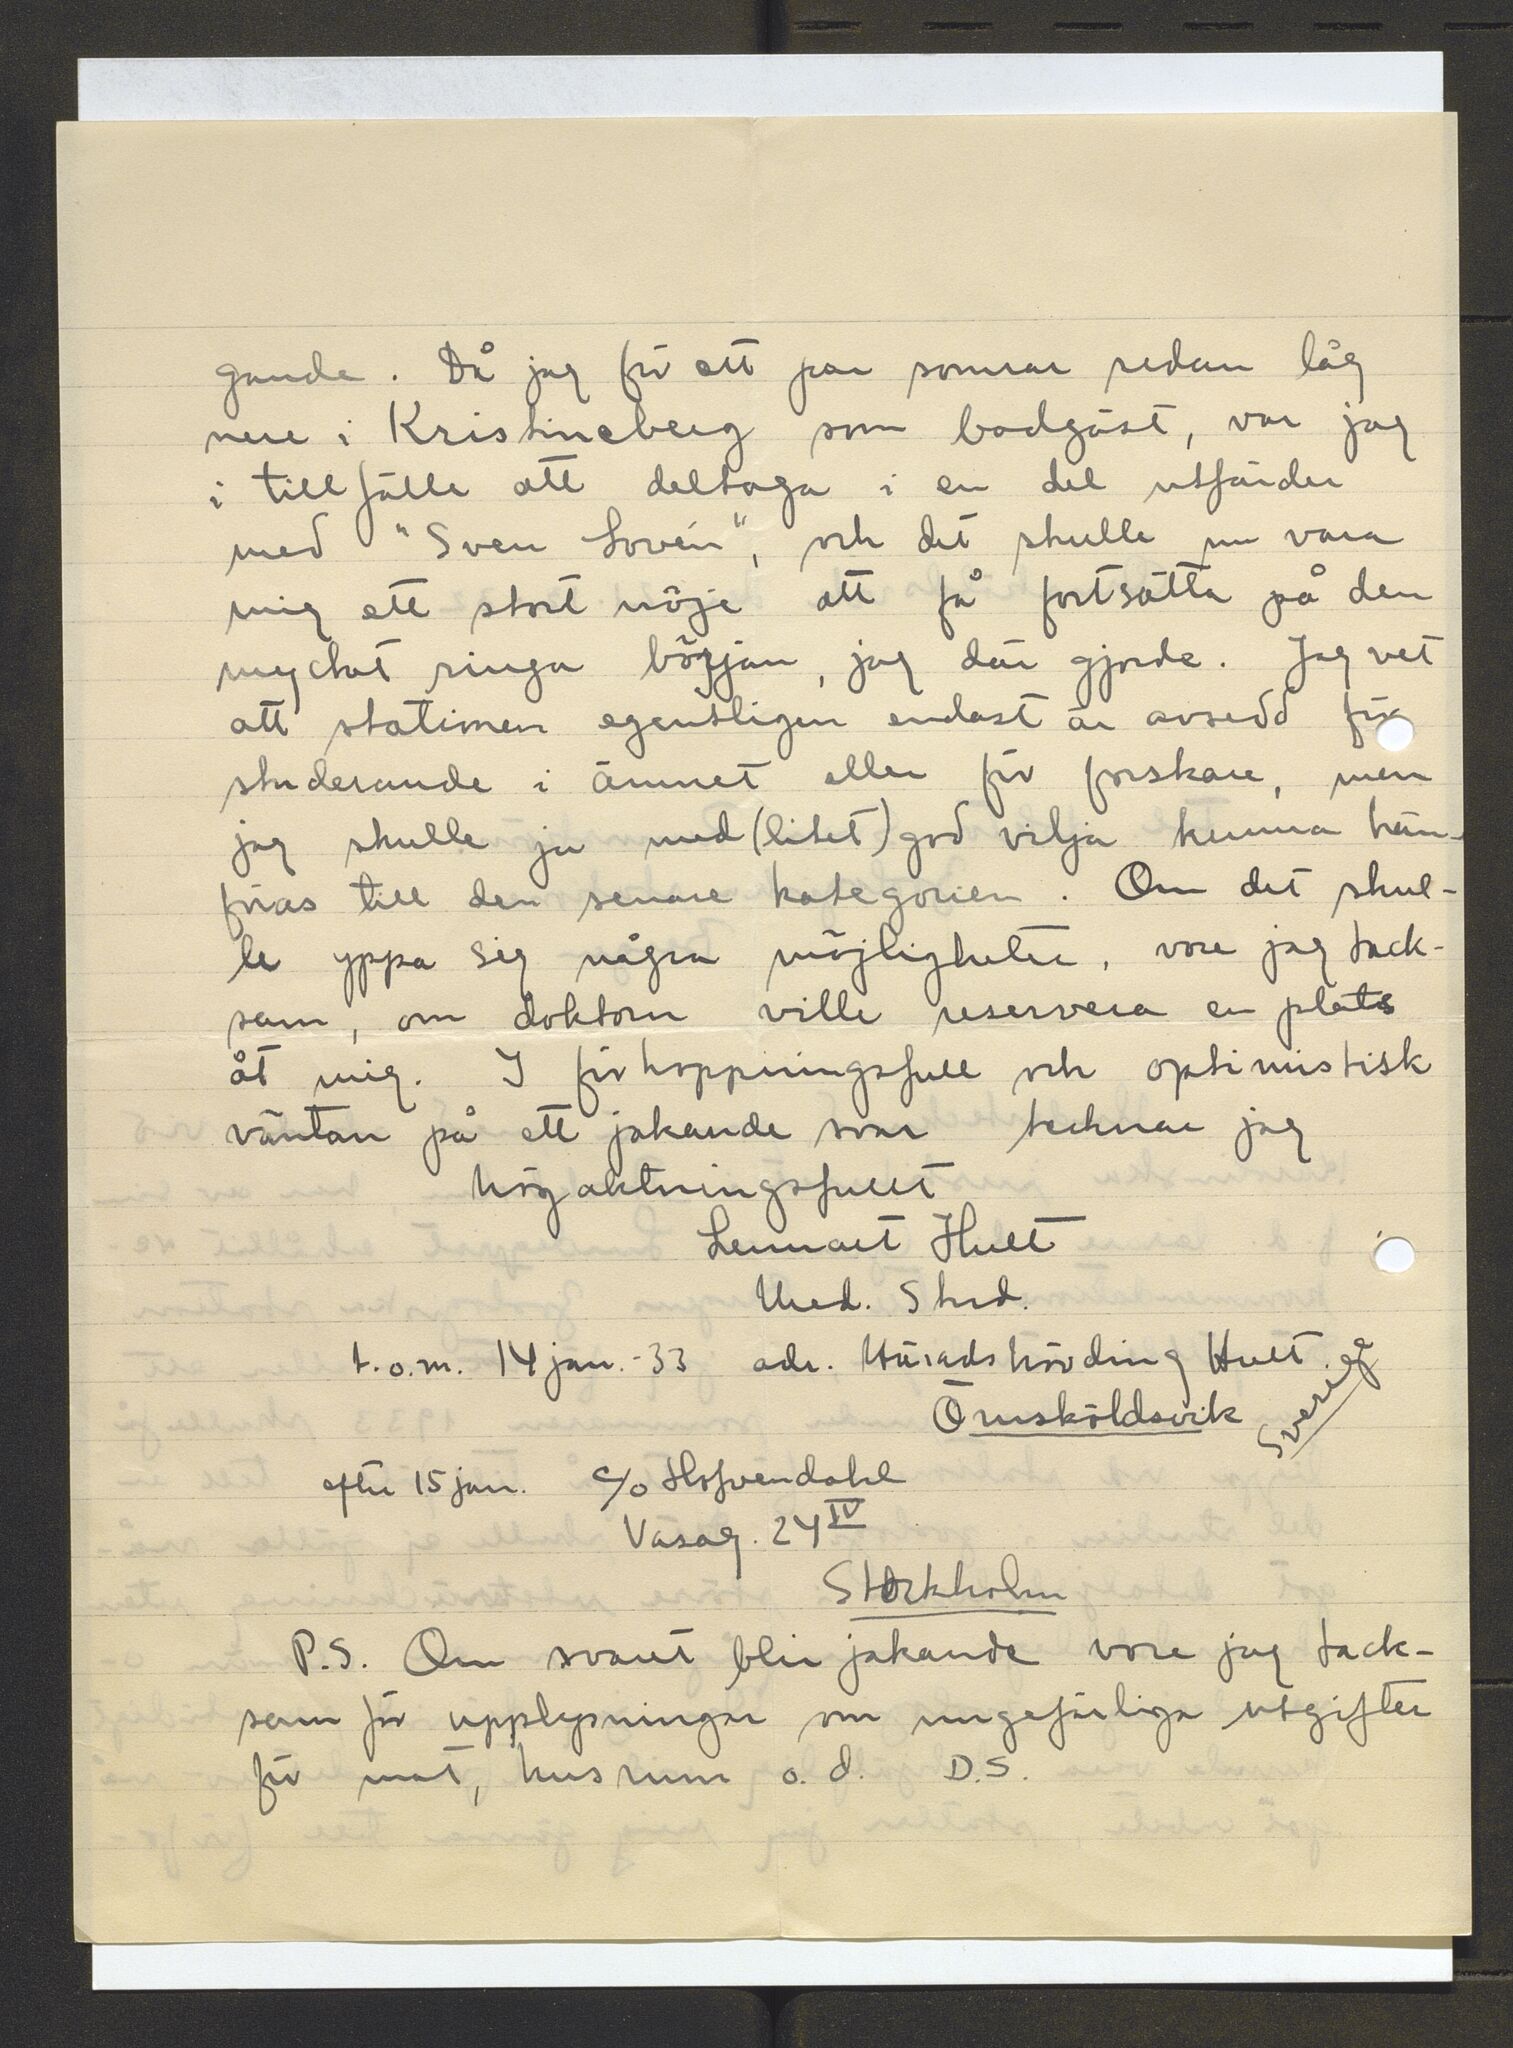 gande. Då jag för ett par somrar redan låg
nere i Kristineberg som badgäst, var jag
i tillfälle att deltaga i en del utfärder
med "Sven Lovén", och det skulle nu vara
mig ett stort nöje att få fortsätta på den
mycket ringa början, jag där gjorde. Jag vet
att stationen egentligen endast är avsedd för
studerande i ämnet eller för forskare, men
jag skulle ju med (litet) god vilja kunna hän-
föras till den senare kategorien. Om det skul-
le yppa sig några möjligheter, vore jag tack-
sam, om doktorn ville reservera en plats
åt mig. I förhoppningsfull och optimistisk
väntan på ett jakande svar tecknar jag
högaktningsfullt
Lennart Hult
Med. Stud.
t.o.m. 14 jan.-33 adr. Häradshövding Hult.
Örnsköldsvik Sverige
efter 15 jan. c/o Hofvendahl
Vasag. 24 IV
Stockholm
P.S. Om svaret blir jakande vore jag tack-
sam för upplysningar om ungefärliga utgifter
för mat, husrum o. d. D.S.